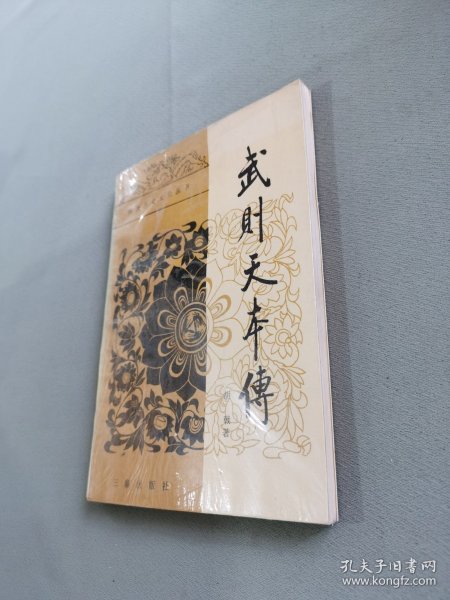 武则天本傳
著
三秦出版社
孔夫子旧书网
www.kongfz.com